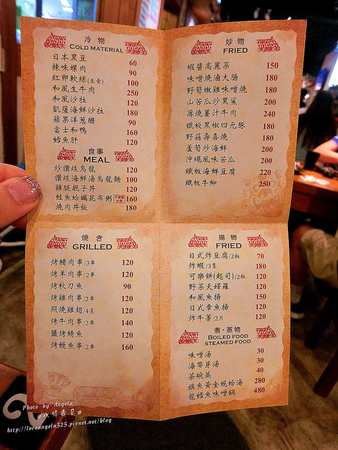 冷物
COLD MATERIAL
日本黑豆 60
辣味螺肉 90
紅卵軟絲(生食) 100
和風生牛肉 250
和風沙拉 120
凱薩海鮮沙拉 180
蘋果洋蔥腮 90
富士和鴨 160
鱈魚肝 120
食事
MEAL
炒讚岐烏龍 120
讚岐海鮮湯烏龍餅 100
雞腿親子丼 120
鮭魚蛤蠣昆布粥 160
燒肉丼飯 180
炒物
FRIED
蝦醬高麗菜 150
味噌燒滷大腸 180
野菊嫩雞味噌燒 180
山苦瓜炒黑鯊 200
薄燒薑汁牛肉 240
鐵板黑椒四元豚 180
野菇壽喜燒 180
蘆筍炒海鮮 200
沖繩風味苦瓜 200
鐵板海鮮豆腐 220
鐵板牛柳 250
燒き
GRILLED
烤豬肉串/3串 120
烤羊肉串/3串 120
烤秋刀魚 90
烤雞肉串/2串 120
照燒雞翅/4支 120
烤牛肉串/2串 140
鹽烤鯖魚 120
烤鰻魚串/2串 160
揚物
FRIED
日式炸豆腐/2板 70
炸蝦/3隻 180
可樂餅(起司)/2板 120
野菜天婦羅 120
和風魚揚 150
日式章魚揚 120
炸牛蒡/2月 120
煮.蒸物
BOILED FOOD
STEAMED FOOD
味噌湯 30
海帶芽湯 40
茶碗蒸 30
旗魚黃金蜆蛤湯 280
龍鱈魚味噌鍋 480
Photo by Angela
http://loveangela325.pixnet.net/blog